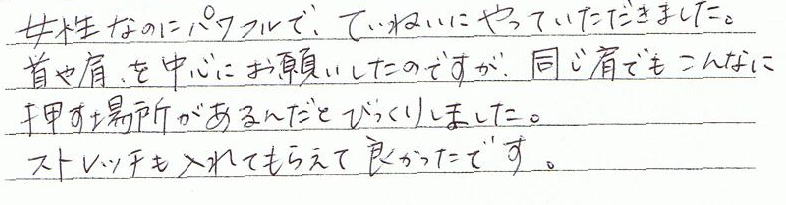 女性なのにパワフルで、ていねいにやっていただきました。
首や肩を中心にお願いしたのですが、同じ肩でもこんなに
押す場所があるんだとびっくりしました。
ストレッチも入れてもらえて良かったです。